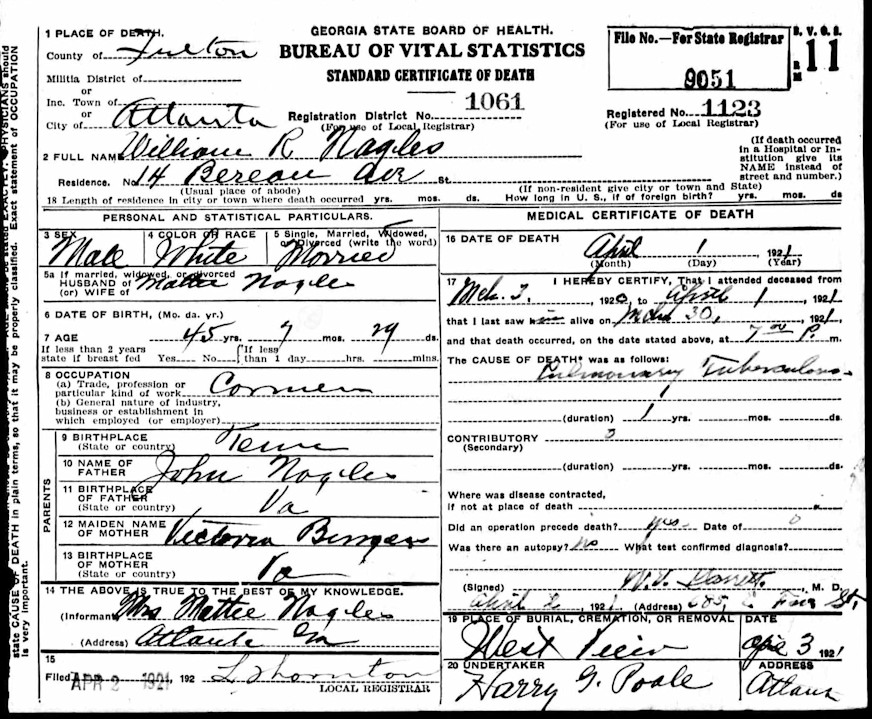 GEORGIA STATE BOARD OF HEALTH.
BUREAU OF VITAL STATISTICS
STANDARD CERTIFICATE OF DEATH
File No.—For State Registrar
9051
S. V. O. S.
11
1 PLACE OF DEATH.
County of Fulton
Militia District of
or
Inc. Town of
or
City of Atlanta
Registration District No. 1061
(For use of Local Registrar)
Registered No. 1123
(For use of Local Registrar)
2 FULL NAME William R Nagles
(If death occurred in a Hospital or Institution give its NAME instead of street and number.)
Residence. No. 14 Berean Ave St.
(Usual place of abode)
(If non-resident give city or town and State)
18 Length of residence in city or town where death occurred yrs. mos. ds How long in U. S., if of foreign birth? yrs. mos. ds
PERSONAL AND STATISTICAL PARTICULARS.
3 SEX
Male
4 COLOR OR RACE
White
5 Single, Married, Widowed, or Divorced (write the word)
Married
5a If married, widowed, or divorced
HUSBAND of Mattie Nagles
(or) WIFE of
6 DATE OF BIRTH, (Mo. da. yr.)
7 AGE 45 yrs. 7 mos. 29 ds.
If less than 2 years
state if breast fed Yes No
If less
than 1 day hrs. mins.
8 OCCUPATION
(a) Trade, profession or
particular kind of work
(b) General nature of industry,
business or establishment in
which employed (or employer)
PARENTS
9 BIRTHPLACE
(State or country) Tenn
10 NAME OF
FATHER John Nagles
11 BIRTHPLACE
OF FATHER
(State or country) Va
12 MAIDEN NAME
OF MOTHER Victoria
13 BIRTHPLACE
OF MOTHER
(State or country) Va
14 THE ABOVE IS TRUE TO THE BEST OF MY KNOWLEDGE.
(Informant) Mrs Mattie Nagles
(Address) Atlanta Ga
15
Filed APR 2 1921, 192 L Thornton
LOCAL REGISTRAR
MEDICAL CERTIFICATE OF DEATH
16 DATE OF DEATH April 1 1921
(Month) (Day) (Year)
17 I HEREBY CERTIFY, That I attended deceased from
Mch. 3, 1920, to April 1, 1921
that I last saw him alive on Mch 30, 1921,
and that death occurred, on the date stated above, at 7 00 P. m.
The CAUSE OF DEATH* was as follows:
Pulmonary Tuberculosis
1
(duration) 1 yrs. mos. ds.
CONTRIBUTORY
(Secondary)
(duration) yrs. mos. ds.
Where was disease contracted,
if not at place of death
Did an operation precede death? yes Date of 0
Was there an autopsy? no What test confirmed diagnosis?
(Signed) W. J. Garrett. M. D.
April 2, 192 (Address) St.
19 PLACE OF BURIAL, CREMATION, OR REMOVAL
West View
DATE
Apr 3 1921
20 UNDERTAKER
Harry G. Poole
ADDRESS
Atlanta
state CAUSE OF DEATH in plain terms, so that it may be properly classified. Exact statement of OCCUPATION
is very important.